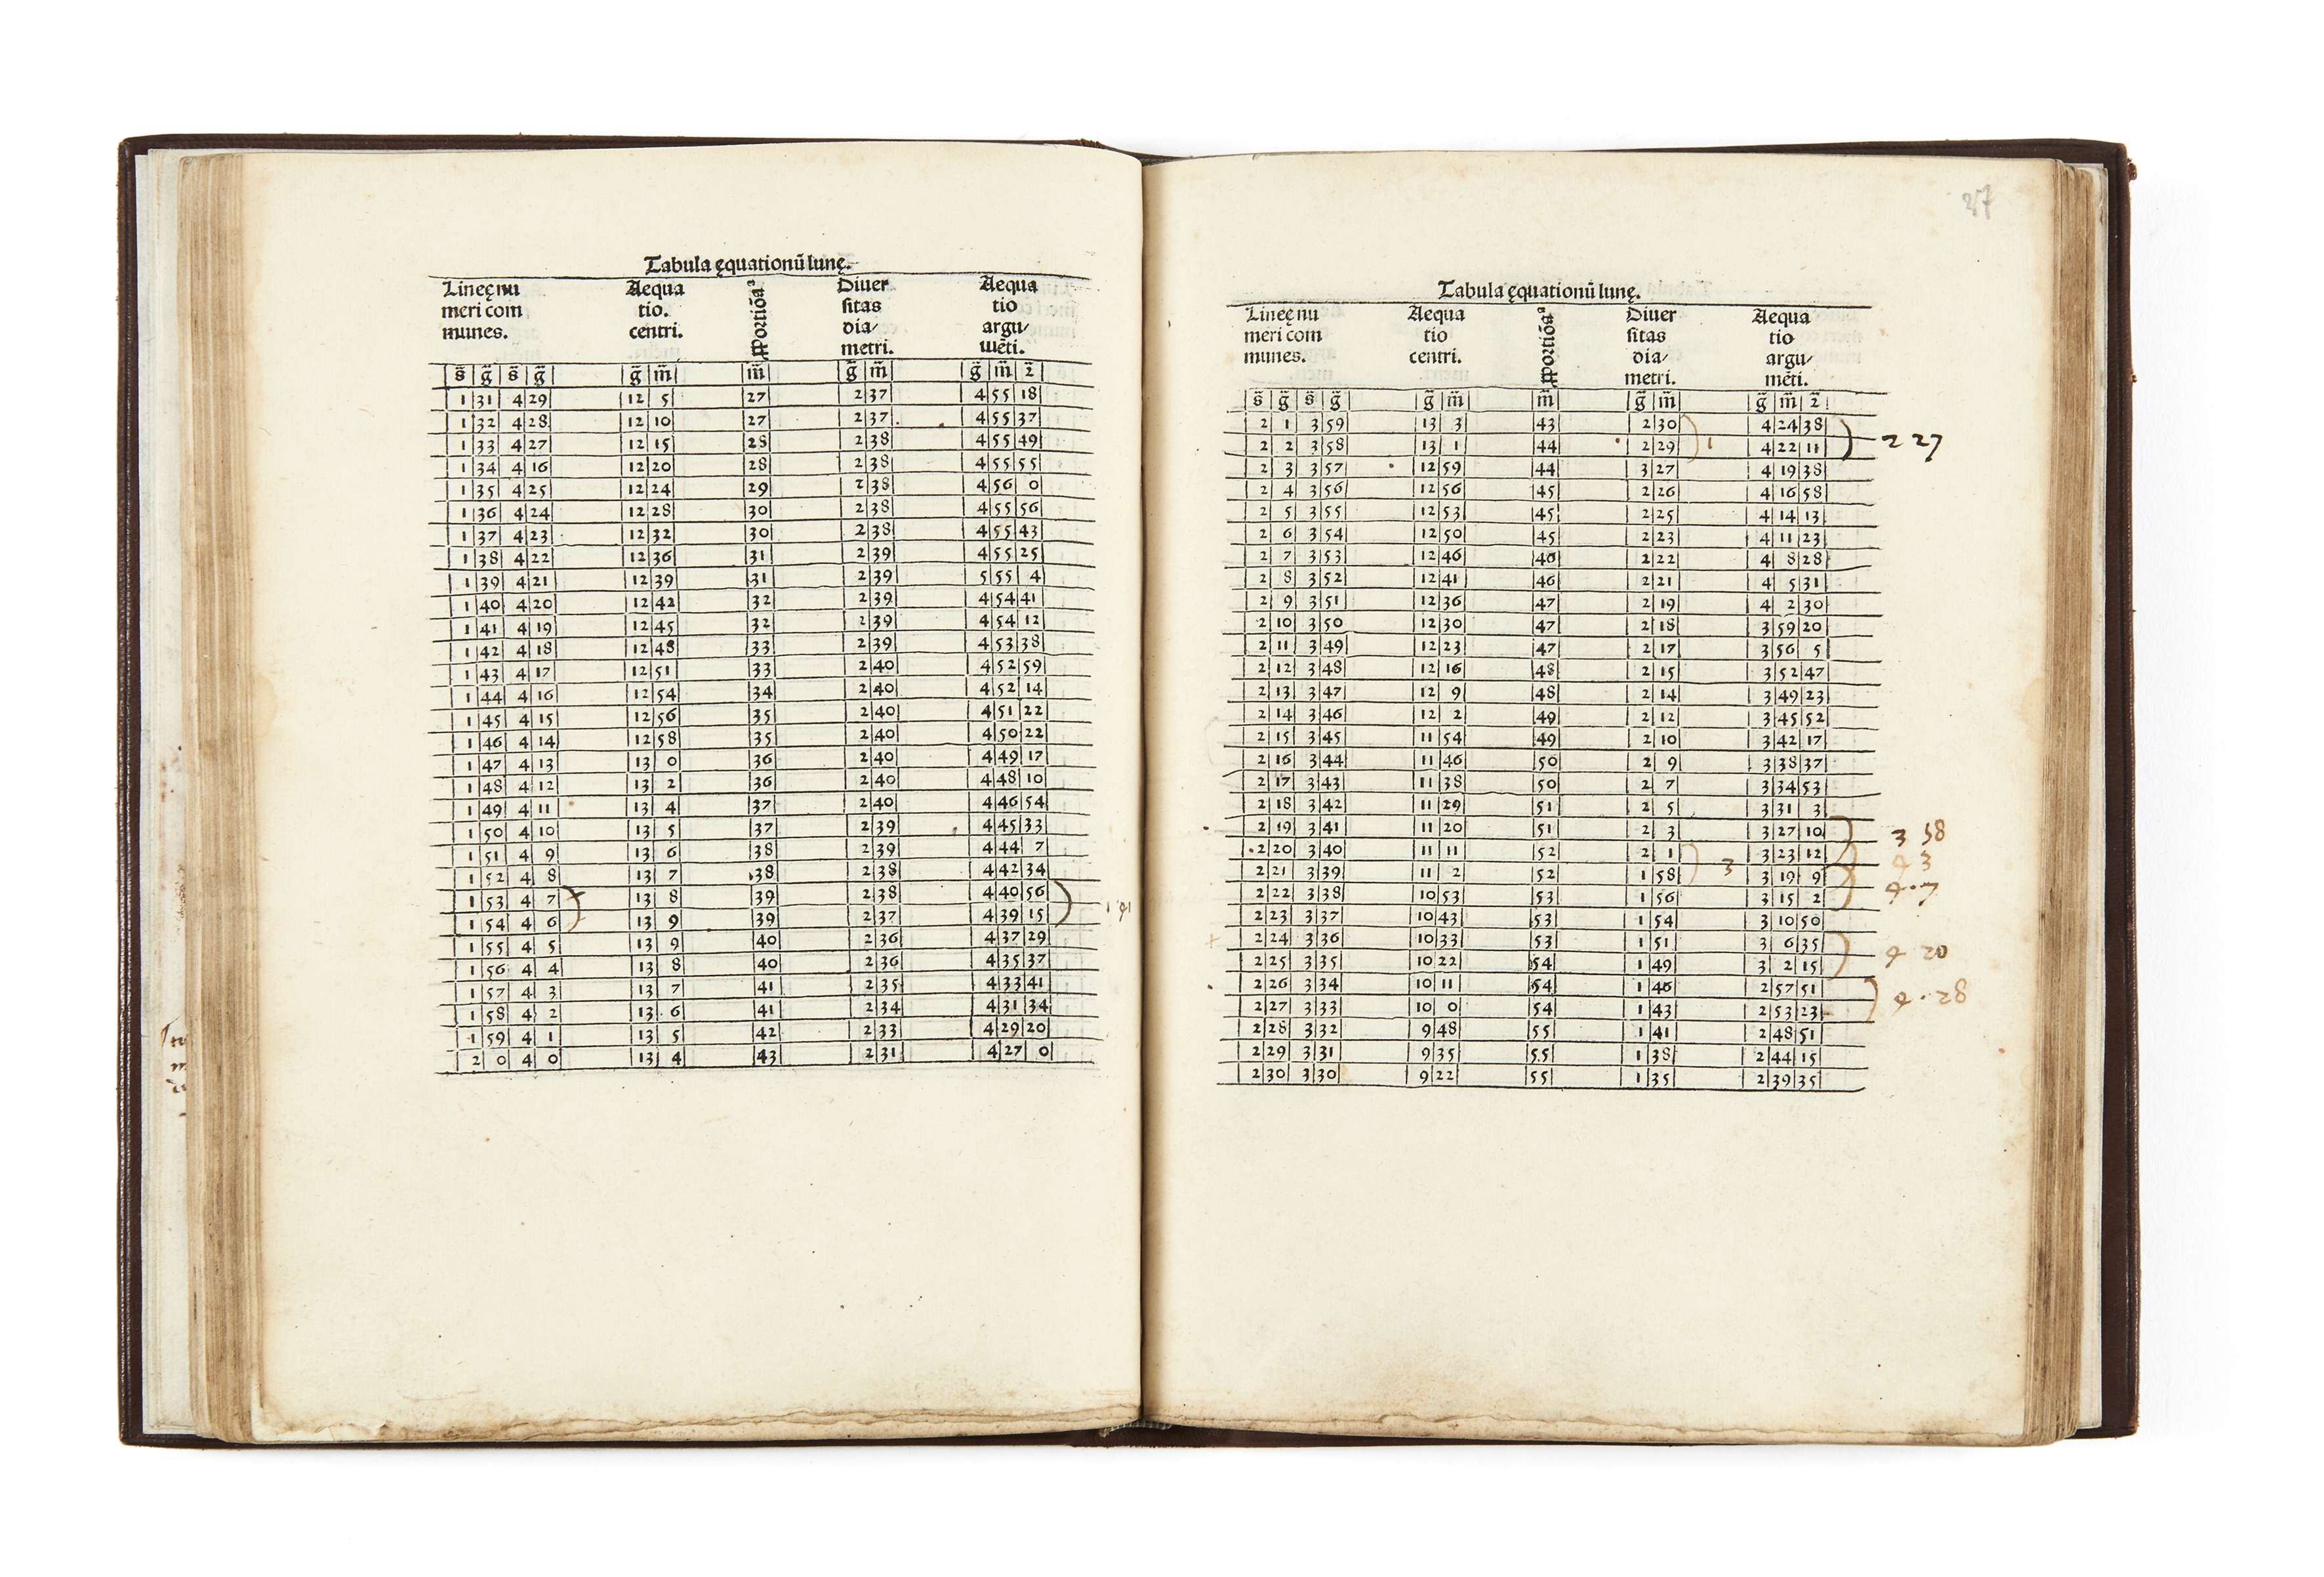 Tabula ęquationū lunę.
Lineę nu Aequa Diuer Aequa
meri com tio. sitas tio
munes. centri. dia/ argu/
metri. mēti.
s̄ ḡ s̄ ḡ ḡ m̄ m̄ ḡ m̄ ḡ m̄ 2̄
1 31 4 29 12 5 27 2 37 4 55 18
1 32 4 28 12 10 27 2 37 4 55 37
1 33 4 27 12 15 28 2 38 4 55 49
1 34 4 16 12 20 28 2 38 4 55 55
1 35 4 25 12 24 29 2 38 4 56 0
1 36 4 24 12 28 30 2 38 4 55 56
1 37 4 23 12 32 30 2 38 4 55 43
1 38 4 22 12 36 31 2 39 4 55 25
1 39 4 21 12 39 31 2 39 5 55 4
1 40 4 20 12 42 32 2 39 4 54 41
1 41 4 19 12 45 32 2 39 4 54 12
1 42 4 18 12 48 33 2 39 4 53 38
1 43 4 17 12 51 33 2 40 4 52 59
1 44 4 16 12 54 34 2 40 4 52 14
1 45 4 15 12 56 35 2 40 4 51 22
1 46 4 14 12 58 35 2 40 4 50 22
1 47 4 13 13 0 36 2 40 4 49 17
1 48 4 12 13 2 36 2 40 4 48 10
1 49 4 11 13 4 37 2 40 4 46 54
1 50 4 10 13 5 37 2 39 4 45 33
1 51 4 9 13 6 38 2 39 4 44 7
1 52 4 8 13 7 38 2 38 4 42 34
1 53 4 7 13 8 39 2 38 4 40 56
1 54 4 6 13 9 39 2 37 4 39 15
1 55 4 5 13 9 40 2 36 4 37 29
1 56 4 4 13 8 40 2 36 4 35 37
1 57 4 3 13 7 41 2 35 4 33 41
1 58 4 2 13 6 41 2 34 4 31 34
1 59 4 1 13 5 42 2 33 4 29 20
2 0 4 0 13 4 43 2 31 4 27 0
Tabula ęquationū lunę.
Lineę nu Aequa Diuer Aequa
meri com tio sitas tio
munes. centri. dia/ argu/
metri. mēti.
s̄ ḡ s̄ ḡ ḡ m̄ m̄ ḡ m̄ ḡ m̄ 2̄
2 1 3 59 13 3 43 2 30 4 24 38
2 2 3 58 13 1 44 2 29 1 4 22 11 2 27
2 3 3 57 12 59 44 3 27 4 19 38
2 4 3 56 12 56 45 2 26 4 16 58
2 5 3 55 12 53 45 2 25 4 14 13
2 6 3 54 12 50 45 2 23 4 11 23
2 7 3 53 12 46 46 2 22 4 8 28
2 8 3 52 12 41 46 2 21 4 5 31
2 9 3 51 12 36 47 2 19 4 2 30
2 10 3 50 12 30 47 2 18 3 59 20
2 11 3 49 12 23 47 2 17 3 56 5
2 12 3 48 12 16 48 2 15 3 52 47
2 13 3 47 12 9 48 2 14 3 49 23
2 14 3 46 12 2 49 2 12 3 45 52
2 15 3 45 11 54 49 2 10 3 42 17
2 16 3 44 11 46 50 2 9 3 38 37
2 17 3 43 11 38 50 2 7 3 34 53
2 18 3 42 11 29 51 2 5 3 31 3
2 19 3 41 11 20 51 2 3 3 27 10 3 58
2 20 3 40 11 11 52 2 1 3 23 12 4 3
2 21 3 39 11 2 52 1 58 3 3 19 9 4 · 7
2 22 3 38 10 53 53 1 56 3 15 2
2 23 3 37 10 43 53 1 54 3 10 50
2 24 3 36 10 33 53 1 51 3 6 35
2 25 3 35 10 22 54 1 49 3 2 15 4 20
2 26 3 34 10 11 54 1 46 2 57 51
2 27 3 33 10 0 54 1 43 2 53 23 4 · 28
2 28 3 32 9 48 55 1 41 2 48 51
2 29 3 31 9 35 55 1 38 2 44 15
2 30 3 30 9 22 55 1 35 2 39 35